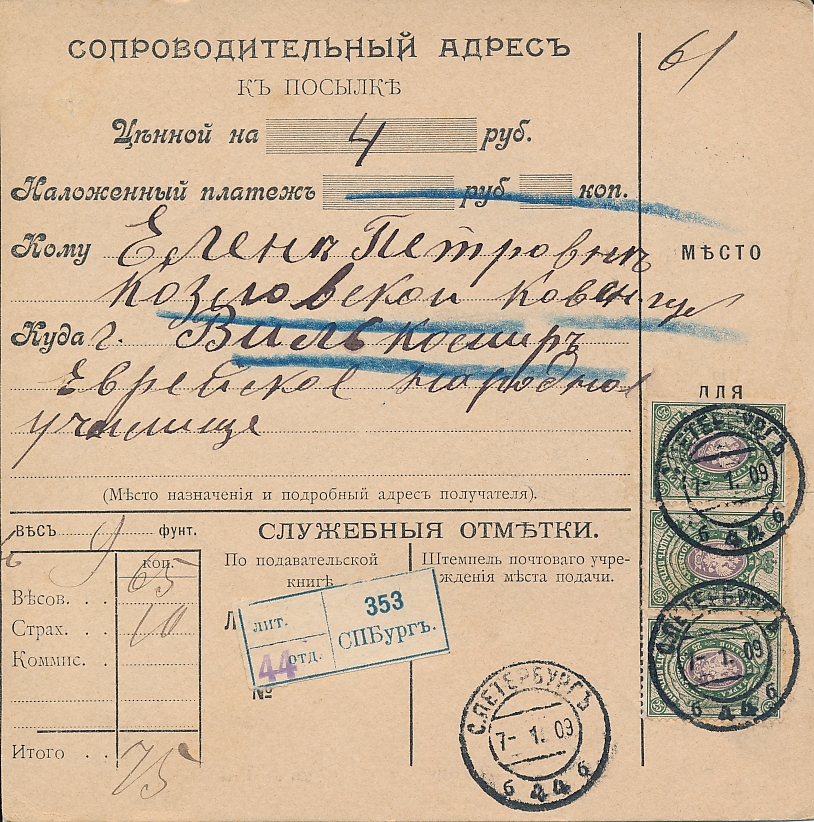 СОПРОВОДИТЕЛЬНЫЙ АДРЕСЪ
КЪ ПОСЫЛКѢ
61
Цѣнной на 4 руб.
Наложенный платежъ руб коп.
Кому Еленѣ Петровнѣ
Козловской Ковен губ
МѢСТО
Куда г. Вилькомиръ
Еврейское народное
училище
ДЛЯ
(Мѣсто назначенія и подробный адресъ получателя).
ВѢСЪ 9 фунт.
СЛУЖЕБНЫЯ ОТМѢТКИ.
коп.
По подавательской
книгѣ
Штемпель почтоваго учре-
жденія мѣста подачи.
Вѣсов. . . 65
Страх. . . 10
Коммис. . .
Итого . . 75
лит. 353
44 отд. СПБургъ.
№
С.ПЕТЕРБУРГЪ
7-1.09
б 44 б
С.ПЕТЕРБУРГЪ
7-1.09
б 44 б
С.ПЕТЕРБУРГЪ
7-1.09
б 44 б